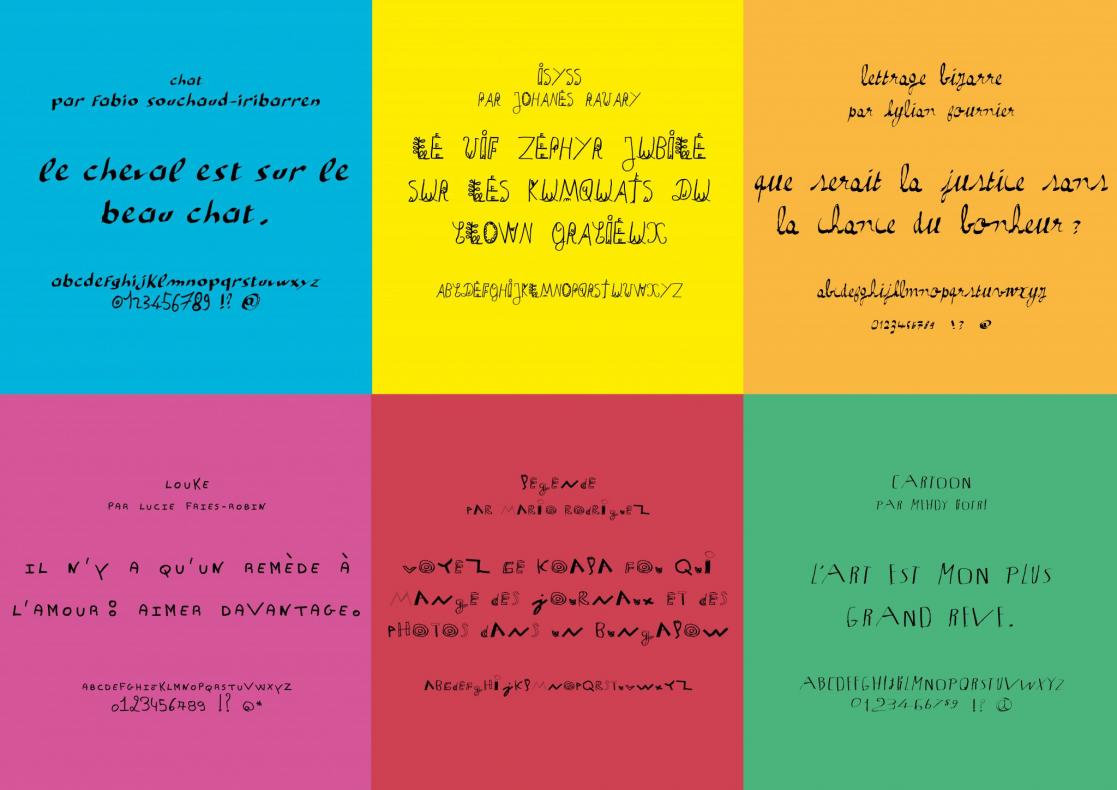 chat
par Fabio Souchaud-iribarren
le cheval est sur le
beau chat.
abcdefghijklmnopqrstuvwxyz
0123456789 !? @
ISYSS
PAR JOHANÈS RAVARY
LE VIF ZÉPHYR JUBILE
SUR LES KUMQUATS DU
CLOWN GRACIEUX
ABCDEFGHIJKLMNOPQRSTUVWXYZ
lettrage bizarre
par lylian fournier
que serait la justice sans
la chance du bonheur ?
abcdefghijklmnopqrstuvwxyz
0123456789 !? @
LOUKE
PAR LUCIE FRIES-ROBIN
IL N'Y A QU'UN REMÈDE À
L'AMOUR : AIMER DAVANTAGE.
ABCDEFGHIJKLMNOPQRSTUVWXYZ
0123456789 !? @*
LEGENDE
PAR MARIO RODRIGUEZ
VOYEZ CE KOALA FOU QUI
MANGE DES JOURNAUX ET DES
PHOTOS DANS UN BUNGALOW
ABCDEFGHIJKLMNOPQRSTUVWXYZ
CARTOON
PAR MEHDY
L'ART EST MON PLUS
GRAND REVE.
ABCDEFGHIJKLMNOPQRSTUVWXYZ
0123456789 !? @